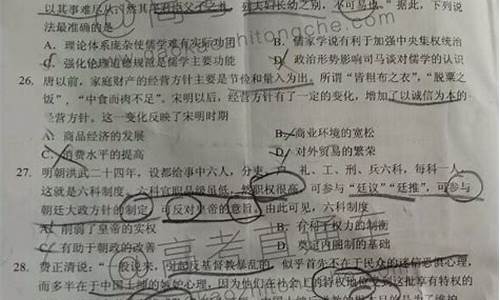 以其事难尽从
夫长幼之别，不可易也。”据此，下列说
法最准确的是
A．理论体系庞杂使儒学难有实际功用
B．儒家学说有利于加强中央集权统治
强化伦理道德规范是儒学主要功能
D．政治形势影响司马谈对儒学的认识
26．唐以前，家庭财产的经营方针主要是节俭和量入为出。所谓“皆粗布之衣”，“脱粟之
饭”，“中食而肉不足”。宋明以后，经营方针有了一定的变化，增加了以诚信为本的
经营方针。这一变化反映了宋明时期
A．商品经济的发展
B．商业环境的宽松
C．消费水平的提高
D．对外贸易的繁荣
27．明朝洪武二十四年，设都给事中六人，分吏、户、礼、工、刑、兵六科，每科一人，
这就是六科制度。六科官职品级虽低，然职权很高，可参与“廷议”“廷推”，可参与
朝廷大政方针的制定，可反对皇帝的意旨。由此可见，六科制度
A．削弱了皇帝的实权
B．有利于权力的制衡
C．有助于朝政的改善
D．奠定内阁制的基础
28．费正清说：“一般说来，对起反基督教暴乱的，似乎首先不在于民众的迷信恐惧心理，
而多半在于中国士绅的妒忌心理，因为他们在社会上的特权地位受到这批享有特权的